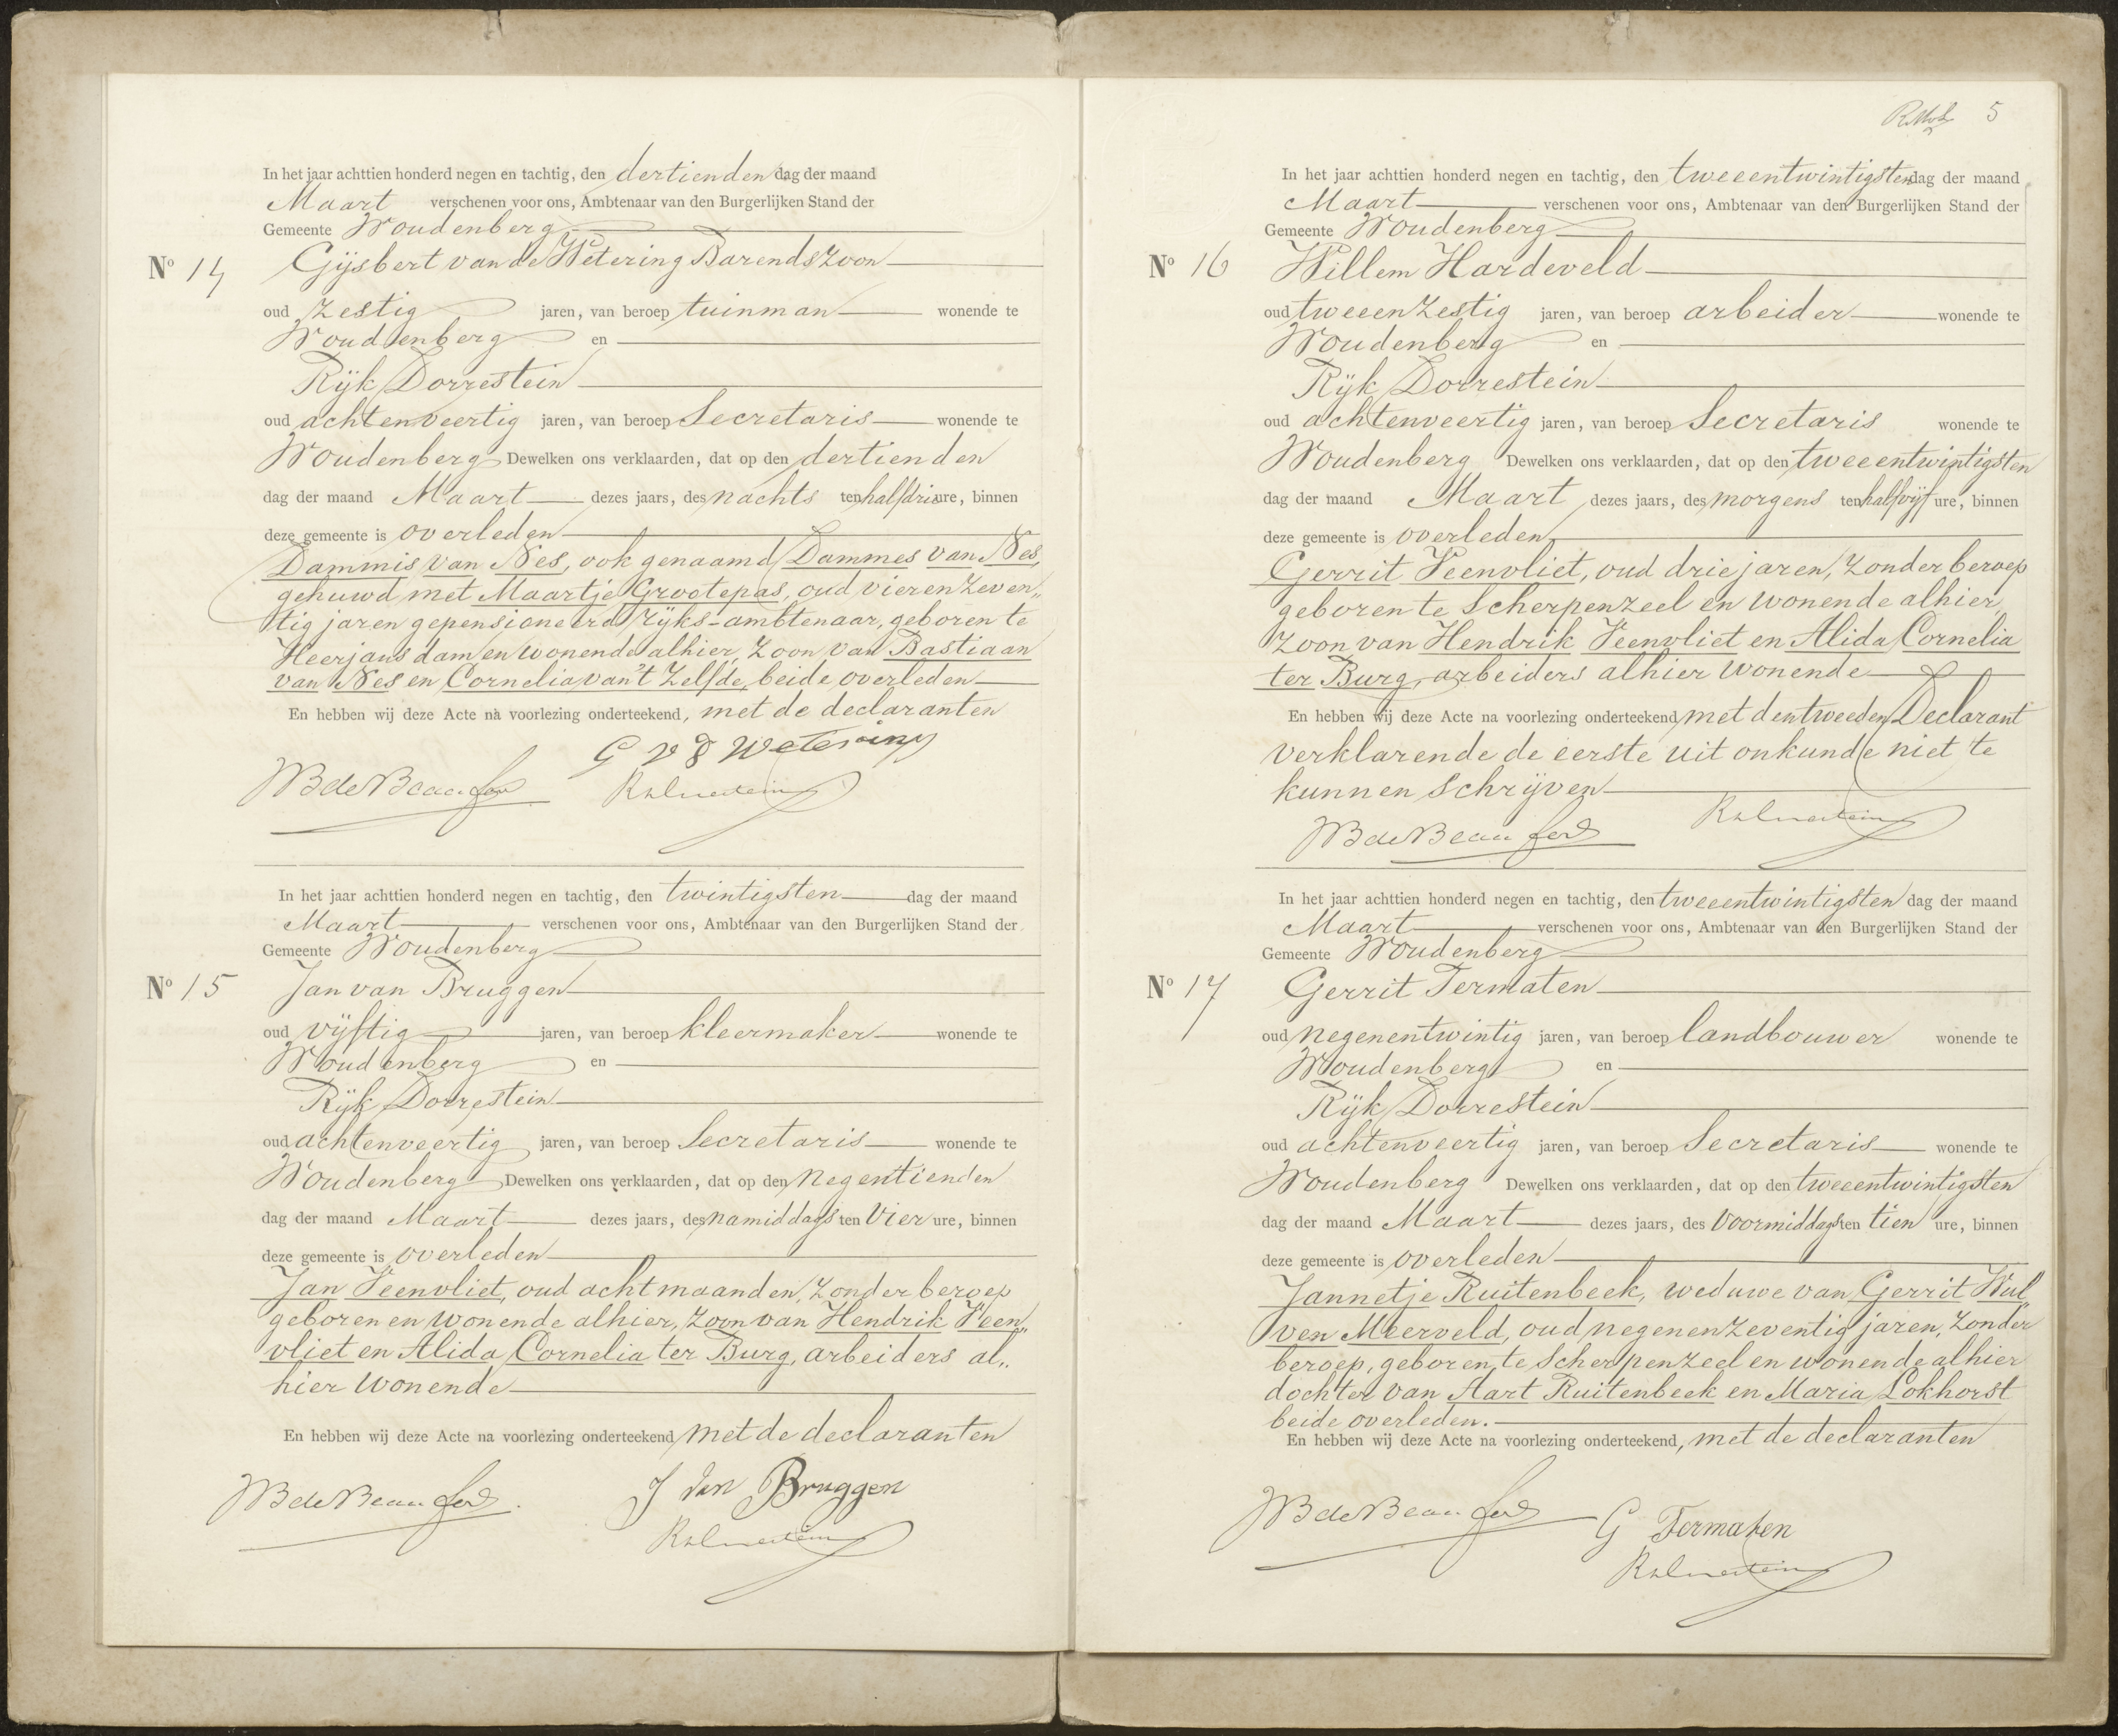 In het jaar achttien honderd negen en tachtig, den dertienden dag der maand
Maart verschenen voor ons, Ambtenaar van den Burgerlijken Stand der
Gemeente Woudenberg
No 14 Gijsbert van de Wetering Barendszoon
oud zestig jaren, van beroep tuinman wonende te
Woudenberg en
Rijk Dorrestein
oud achtenveertig jaren, van beroep Secretaris wonende te
Woudenberg Dewelken ons verklaarden, dat op den dertienden
dag der maand Maart dezes jaars, des nachts ten half drie ure, binnen
deze gemeente is overleden
Dammis van Nes, ook genaamd Dammes van Nes,
gehuwd met Maartje Grootepas, oud vierenzeven„
tig jaren gepensioneerd rijks-ambtenaar, geboren te
Heerjansdam en wonende alhier, zoon van Bastiaan
van Nes en Cornelia van 't Zelfde, beide overleden
En hebben wij deze Acte na voorlezing onderteekend, met de declaranten
G v d Wetering
WB de Beaufort
RDorrestein
In het jaar achttien honderd negen en tachtig, den twintigsten dag der maand
Maart verschenen voor ons, Ambtenaar van den Burgerlijken Stand der
Gemeente Woudenberg
No 15 Jan van Bruggen
oud vijftig jaren, van beroep kleermaker wonende te
Woudenberg en
Rijk Dorrestein
oud achtenveertig jaren, van beroep Secretaris wonende te
Woudenberg Dewelken ons verklaarden, dat op den negentienden
dag der maand Maart dezes jaars, des namiddags ten vier ure, binnen
deze gemeente is overleden
Jan Veenvliet, oud acht maanden, zonder beroep
geboren en wonende alhier, zoon van Hendrik Veen„
vliet en Alida Cornelia ter Burg, arbeiders al„
hier wonende
En hebben wij deze Acte na voorlezing onderteekend, met de declaranten
J van Bruggen
WB de Beaufort
RDorrestein
5
In het jaar achttien honderd negen en tachtig, den tweeentwintigsten dag der maand
Maart verschenen voor ons, Ambtenaar van den Burgerlijken Stand der
Gemeente Woudenberg
No 16 Willem Hardeveld
oud tweeenzestig jaren, van beroep arbeider wonende te
Woudenberg en
Rijk Dorrestein
oud achtenveertig jaren, van beroep Secretaris wonende te
Woudenberg Dewelken ons verklaarden, dat op den tweeentwintigsten
dag der maand Maart dezes jaars, des morgens ten half vijf ure, binnen
deze gemeente is overleden,
Gerrit Veenvliet, oud drie jaren, zonder beroep
geboren te Scherpenzeel en wonende alhier,
zoon van Hendrik Veenvliet en Alida Cornelia
ter Burg, arbeiders alhier wonende
En hebben wij deze Acte na voorlezing onderteekend, met den tweeden Declarant
verklarende de eerste uit onkunde niet te
kunnen schrijven
RDorrestein
WB de Beaufort
In het jaar achttien honderd negen en tachtig, den tweeentwintigsten dag der maand
Maart verschenen voor ons, Ambtenaar van den Burgerlijken Stand der
Gemeente Woudenberg
No 17 Gerrit Termaten
oud negenentwintig jaren, van beroep landbouwer wonende te
Woudenberg en
Rijk Dorrestein
oud achtenveertig jaren, van beroep Secretaris wonende te
Woudenberg Dewelken ons verklaarden, dat op den tweeentwintigsten
dag der maand Maart dezes jaars, des voormiddags ten tien ure, binnen
deze gemeente is overleden
Jannetje Ruitenbeek, weduwe van Gerrit Wul„
ven Meerveld, oud negenenzeventig jaren, zonder
beroep, geboren te Scherpenzeel en wonende alhier
dochter van Aart Ruitenbeek en Maria Lokhorst
beide overleden.
En hebben wij deze Acte na voorlezing onderteekend, met de declaranten
WB de Beaufort
G Termaten
RDorrestein